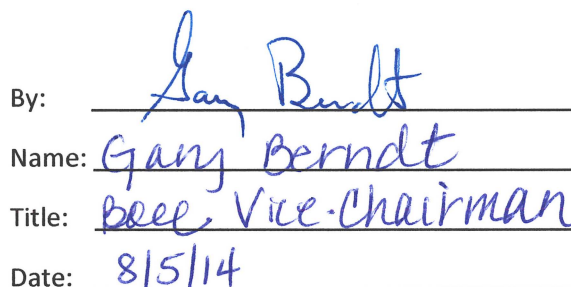 By: Gary Berndt
Name: Gary Berndt
Title: Bocc Vice-Chairman
Date: 8/5/14